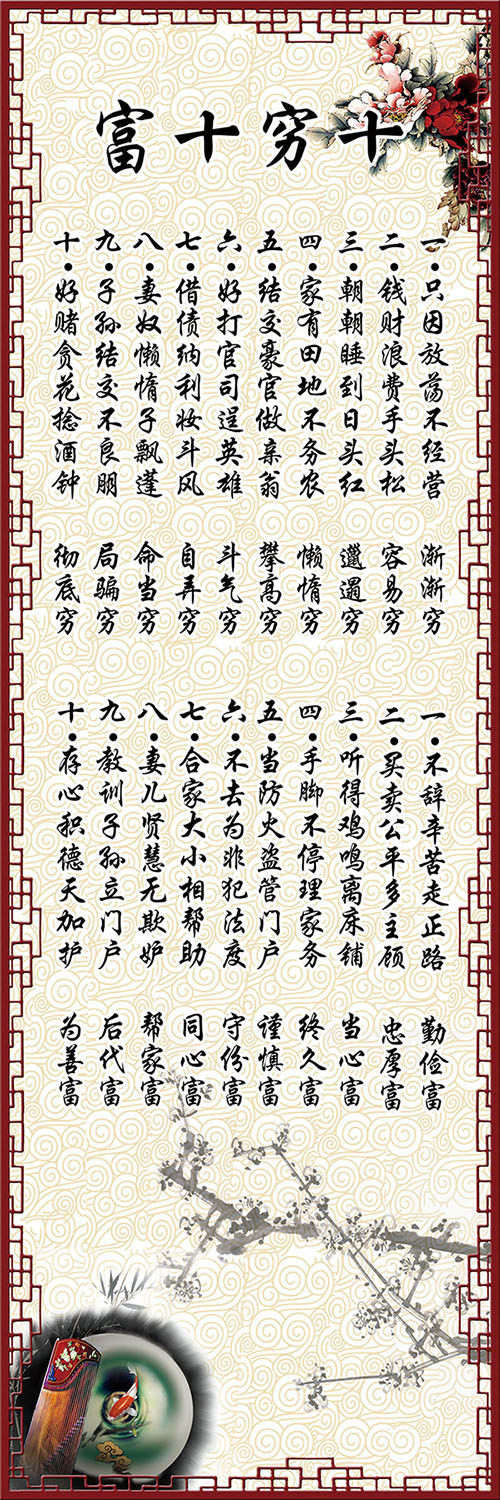 十穷十富
一·只因放荡不经营 渐渐穷
二·钱财浪费手头松 容易穷
三·朝朝睡到日头红 邋遢穷
四·家有田地不务农 懒惰穷
五·结交豪官做亲翁 攀高穷
六·好打官司逞英雄 斗气穷
七·借债纳利妆斗风 自弄穷
八·妻奴懒惰子飘蓬 命当穷
九·子孙结交不良朋 局骗穷
十·好赌贪花捻酒钟 彻底穷
一·不辞辛苦走正路 勤俭富
二·买卖公平多主顾 忠厚富
三·听得鸡鸣离床铺 当心富
四·手脚不停理家务 终久富
五·当防火盗管门户 谨慎富
六·不去为非犯法度 守份富
七·合家大小相帮助 同心富
八·妻儿贤慧无欺妒 帮家富
九·教训子孙立门户 后代富
十·存心积德天加护 为善富